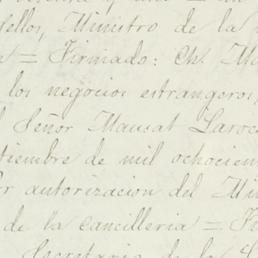 ellos, Ministro de la
= Firmado: Ch. Ma
los negocios estrangeros,
Señor Mausat Laroc
tiembre de mil ochocien
or autorizacion del Mi
de la cancilleria = Fi
Secretario de la